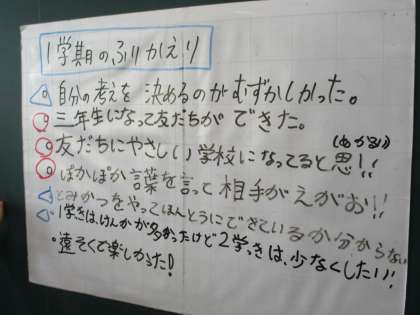 1学期のふりかえり
自分の考えを決めるのがむずかしかった。
三年生になって友だちができた。
(めがるい)
友だちにやさしい学校になってると思!!
ぽかぽか言葉を言って相手がえがお!!
とみかつをやってほんとうにできているか分からない
1学きは、けんかが多かったけど2学っきは、少なくしたい!
遠そくで楽しかった!